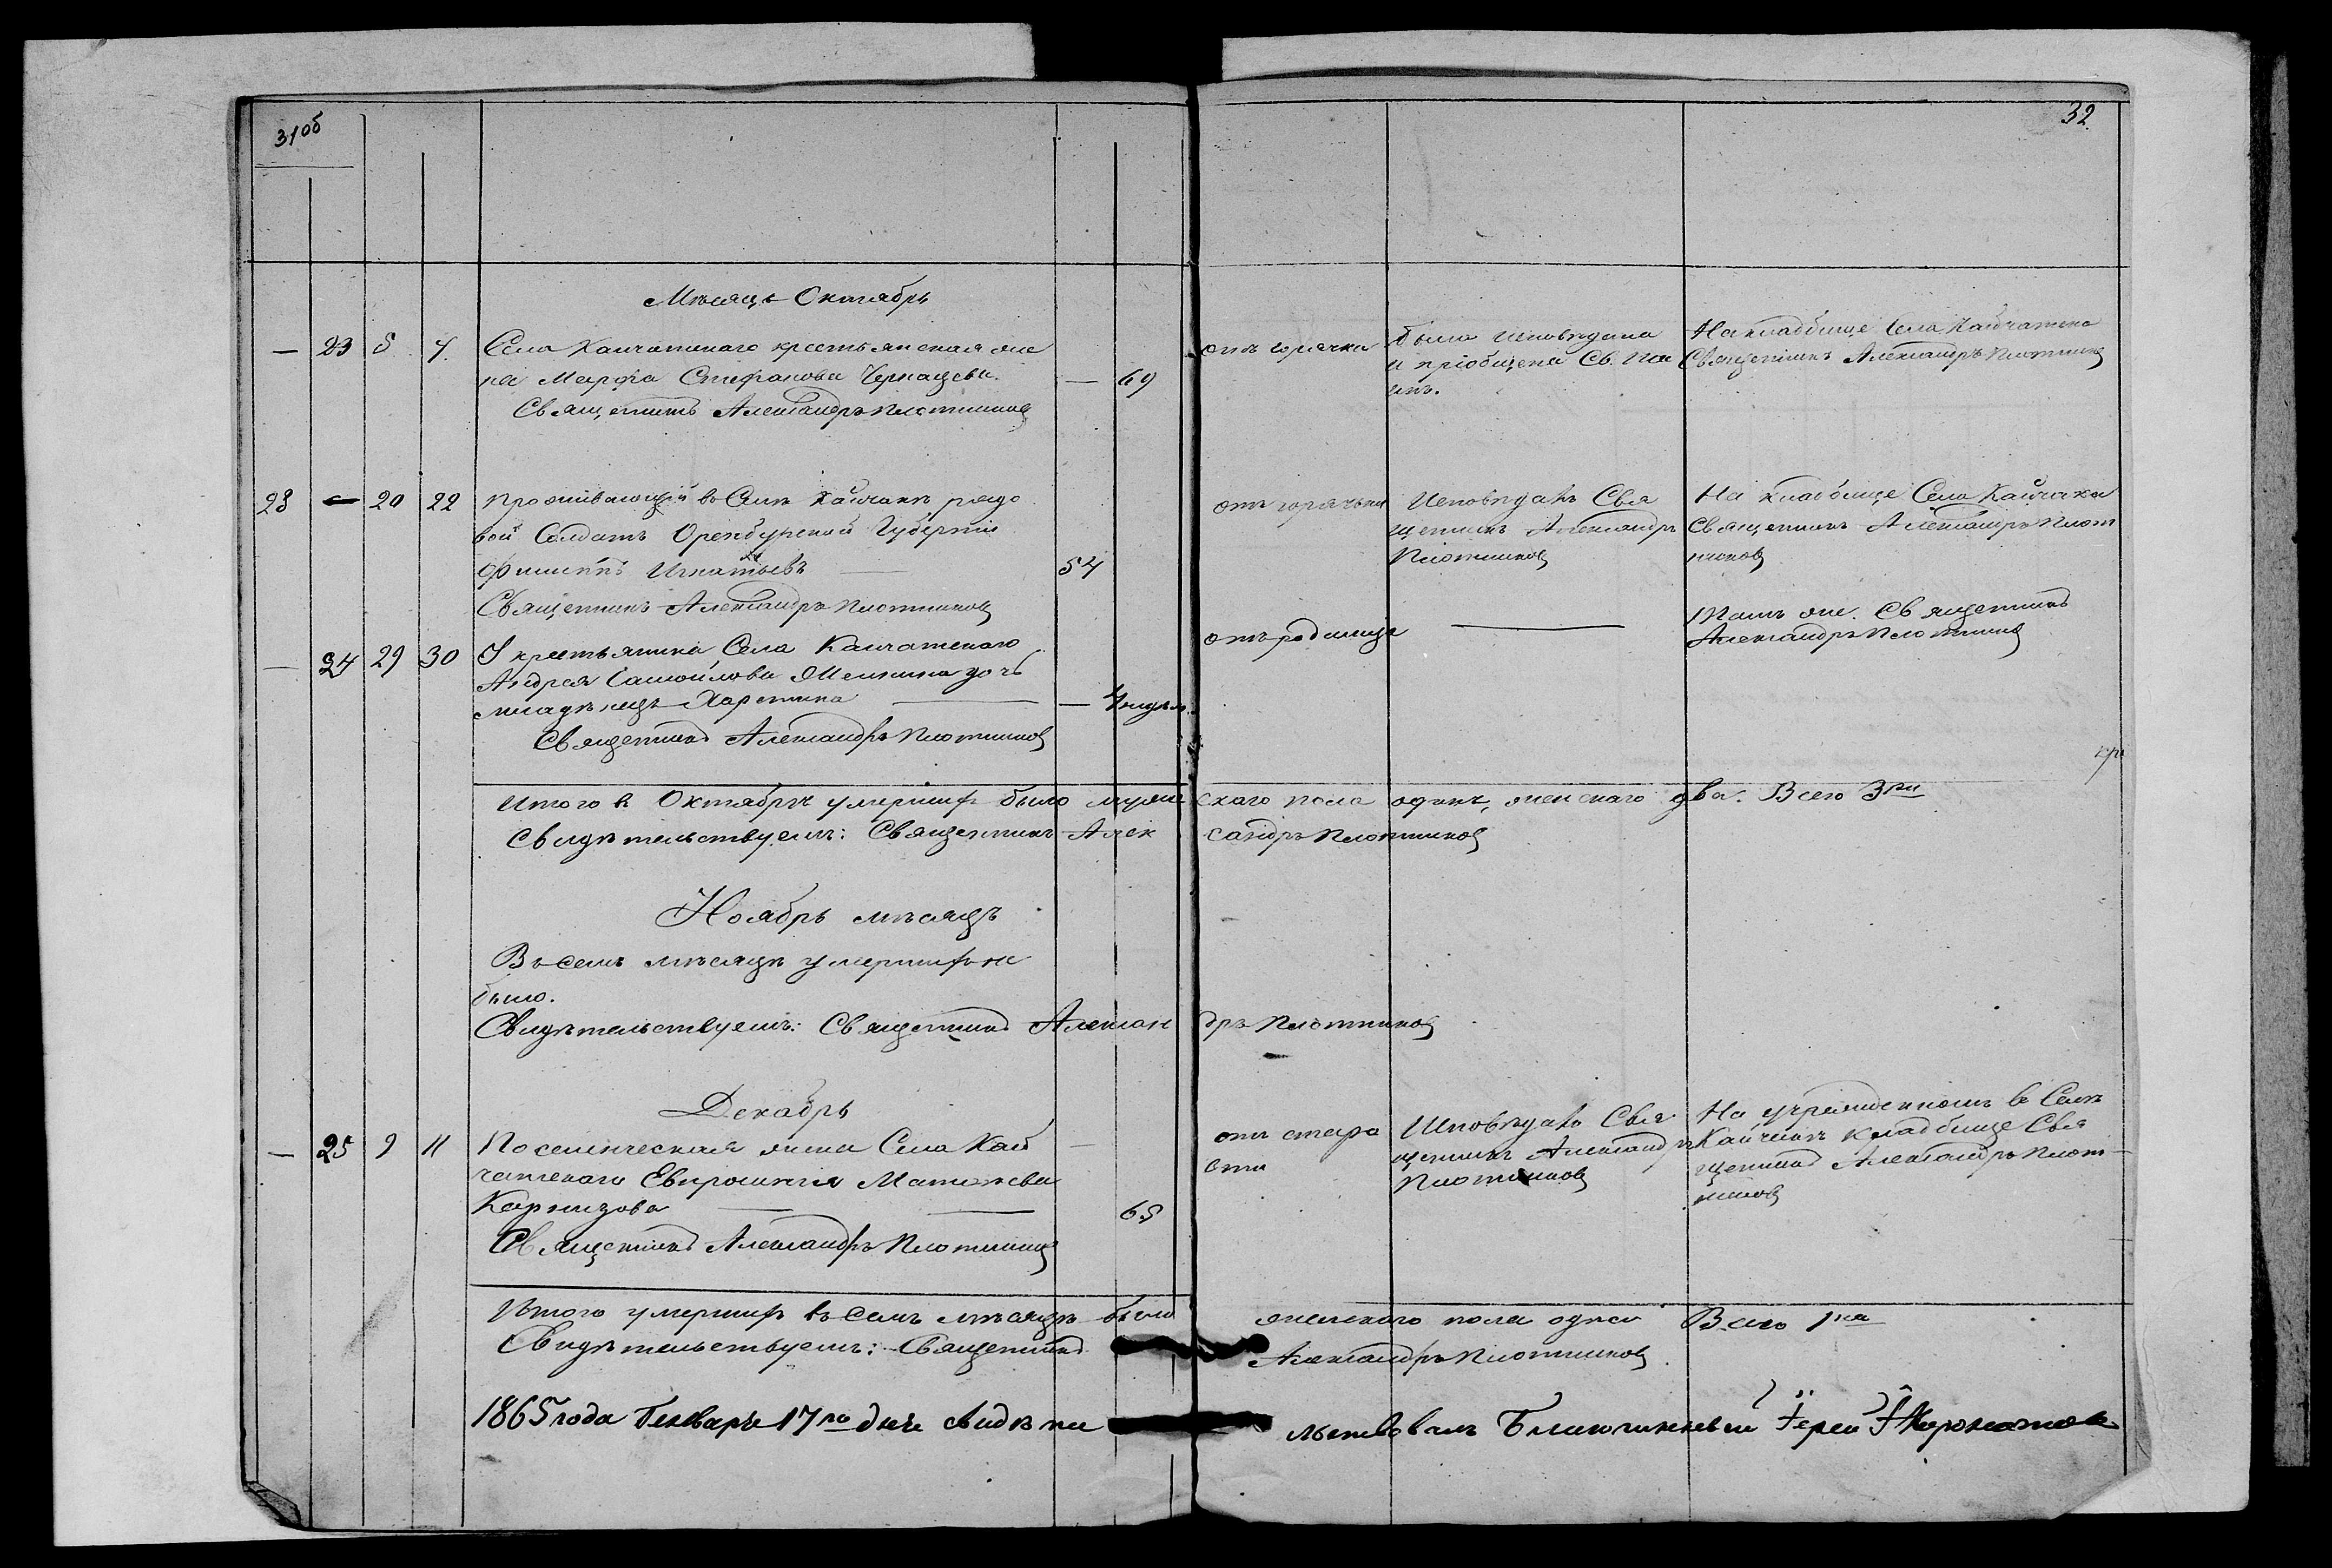 31об
32
Мѣсяцъ Октябрь
— 23 5 7. Села Каичатскаго крестьянская же
на Марѳа Стефанова Чернацева. — 69
Священникъ Александръ Плотниковъ
отъ горячки
была исповѣдана
и пріобщена Св. Та
инъ.
На кладбище Села Кайчатска
Священникъ Александръ Плотников
23 — 20 22 Проживающій въ Селѣ Кайчакѣ рядо
вой Солдатъ Оренбургской Губерніи
Филиппъ Игнатьевъ — 54
Священникъ Александръ Плотниковъ
отъ горячки
Исповѣдалъ Свя
щенникъ Александръ
Плотниковъ
На кладбище Села Кайчака
Священникъ Александръ Плот
никовъ
— 24 29 30 У крестьянина Села Каичатскаго
Андрея Самойлова дочь
младѣнецъ Харетина — — 4 недѣл.
Священникъ Александръ Плотниковъ
отъ родимца
—
Тамъ же. Священникъ
Александръ Плотников
Итого в Октябрѣ умершихъ было муже скаго пола одинъ, женскаго два. Всего 3ри
Свидѣтельствуемъ: Священникъ Алек сандръ Плотниковъ
Ноябрь мѣсяцъ
Въ семъ мѣсяцѣ умершихъ не
было.
Свидѣтельствуемъ: Священникъ Алексан дръ Плотниковъ
Декабрь
— 25 9 11 Поселенческая жена Села Кай —
чатскаго Евпроксинія Матѳеева
Карнизова — — 65
Священникъ Александръ Плотников
отъ старо
сти
Исповѣдалъ Свя
щенникъ Александръ
Плотниковъ
На учрежденномъ в Селѣ
Кайчакѣ кладбище Свя
щенникъ Александръ Плот-
никовъ
Итого умершихъ въ семъ мѣсяцѣ было женскаго пола одна Всего 1на
Свидѣтельствуемъ: Священникъ Александръ Плотниковъ
1865 года Генваря 17го дня свидѣте льствовалъ Благочинный Іерей